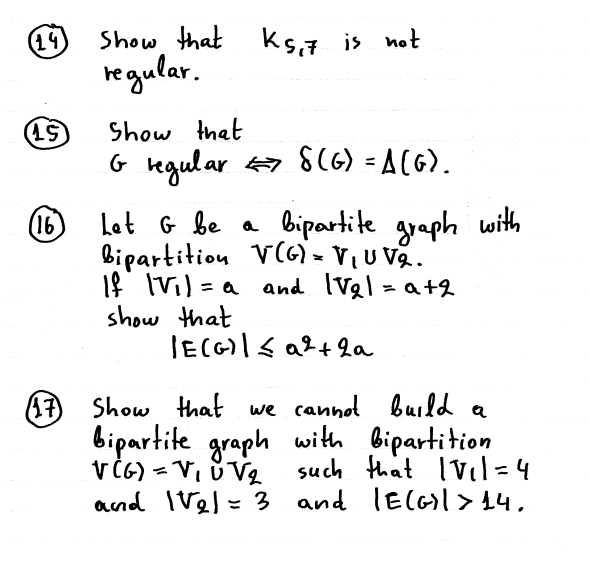 (14) Show that K5,7 is not
regular.
(15) Show that
G regular ⟺ δ(G) = Δ(G).
(16) Let G be a bipartite graph with
bipartition V(G) = V1 ∪ V2.
If |V1| = a and |V2| = a+2
show that
|E(G)| ≤ a2 + 2a
(17) Show that we cannot build a
bipartite graph with bipartition
V(G) = V1 ∪ V2 such that |V1| = 4
and |V2| = 3 and |E(G)| > 14.